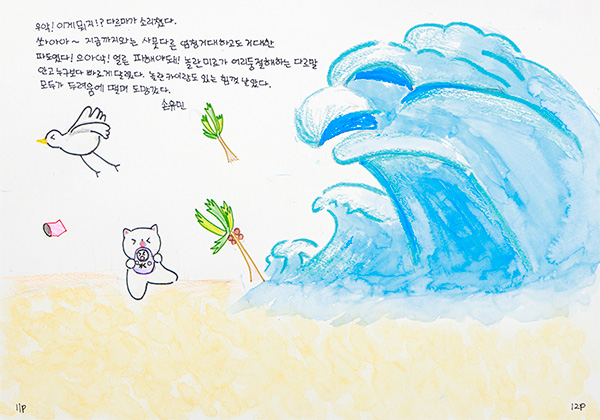 우악! 이게 뭐지!? 다르마가 소리쳤다.
쏴아아아~ 지금까지와는 사뭇다른 엄청거대하고도 거대한
파도였다! 으아악! 얼른 피해야돼! 놀란 미르가 어리둥절해하는 다르말
안고 누구보다 빠르게 달렸다. 놀란 카이람도 있는 힘껏 날았다.
모두가 두려움에 떨며 도망갔다.
손유민
11p
12p